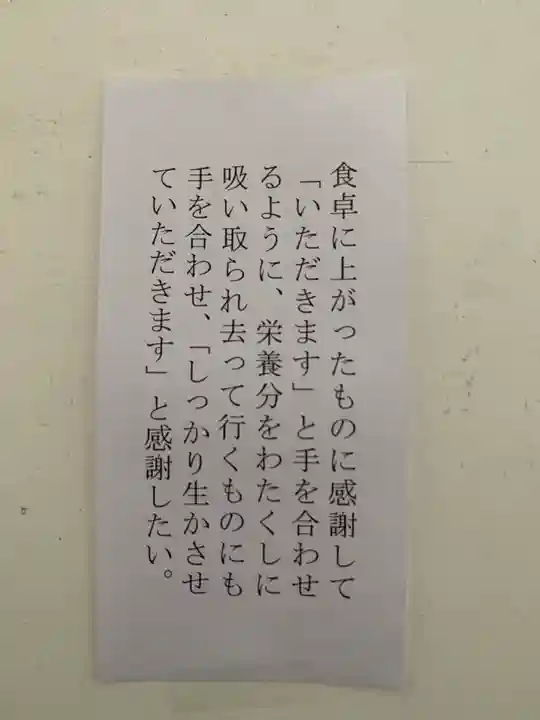 食卓に上がったものに感謝して
「いただきます」と手を合わせ
るように、栄養分をわたくしに
吸い取られ去って行くものにも
手を合わせ、「しっかり生かさせ
ていただきます」と感謝したい。